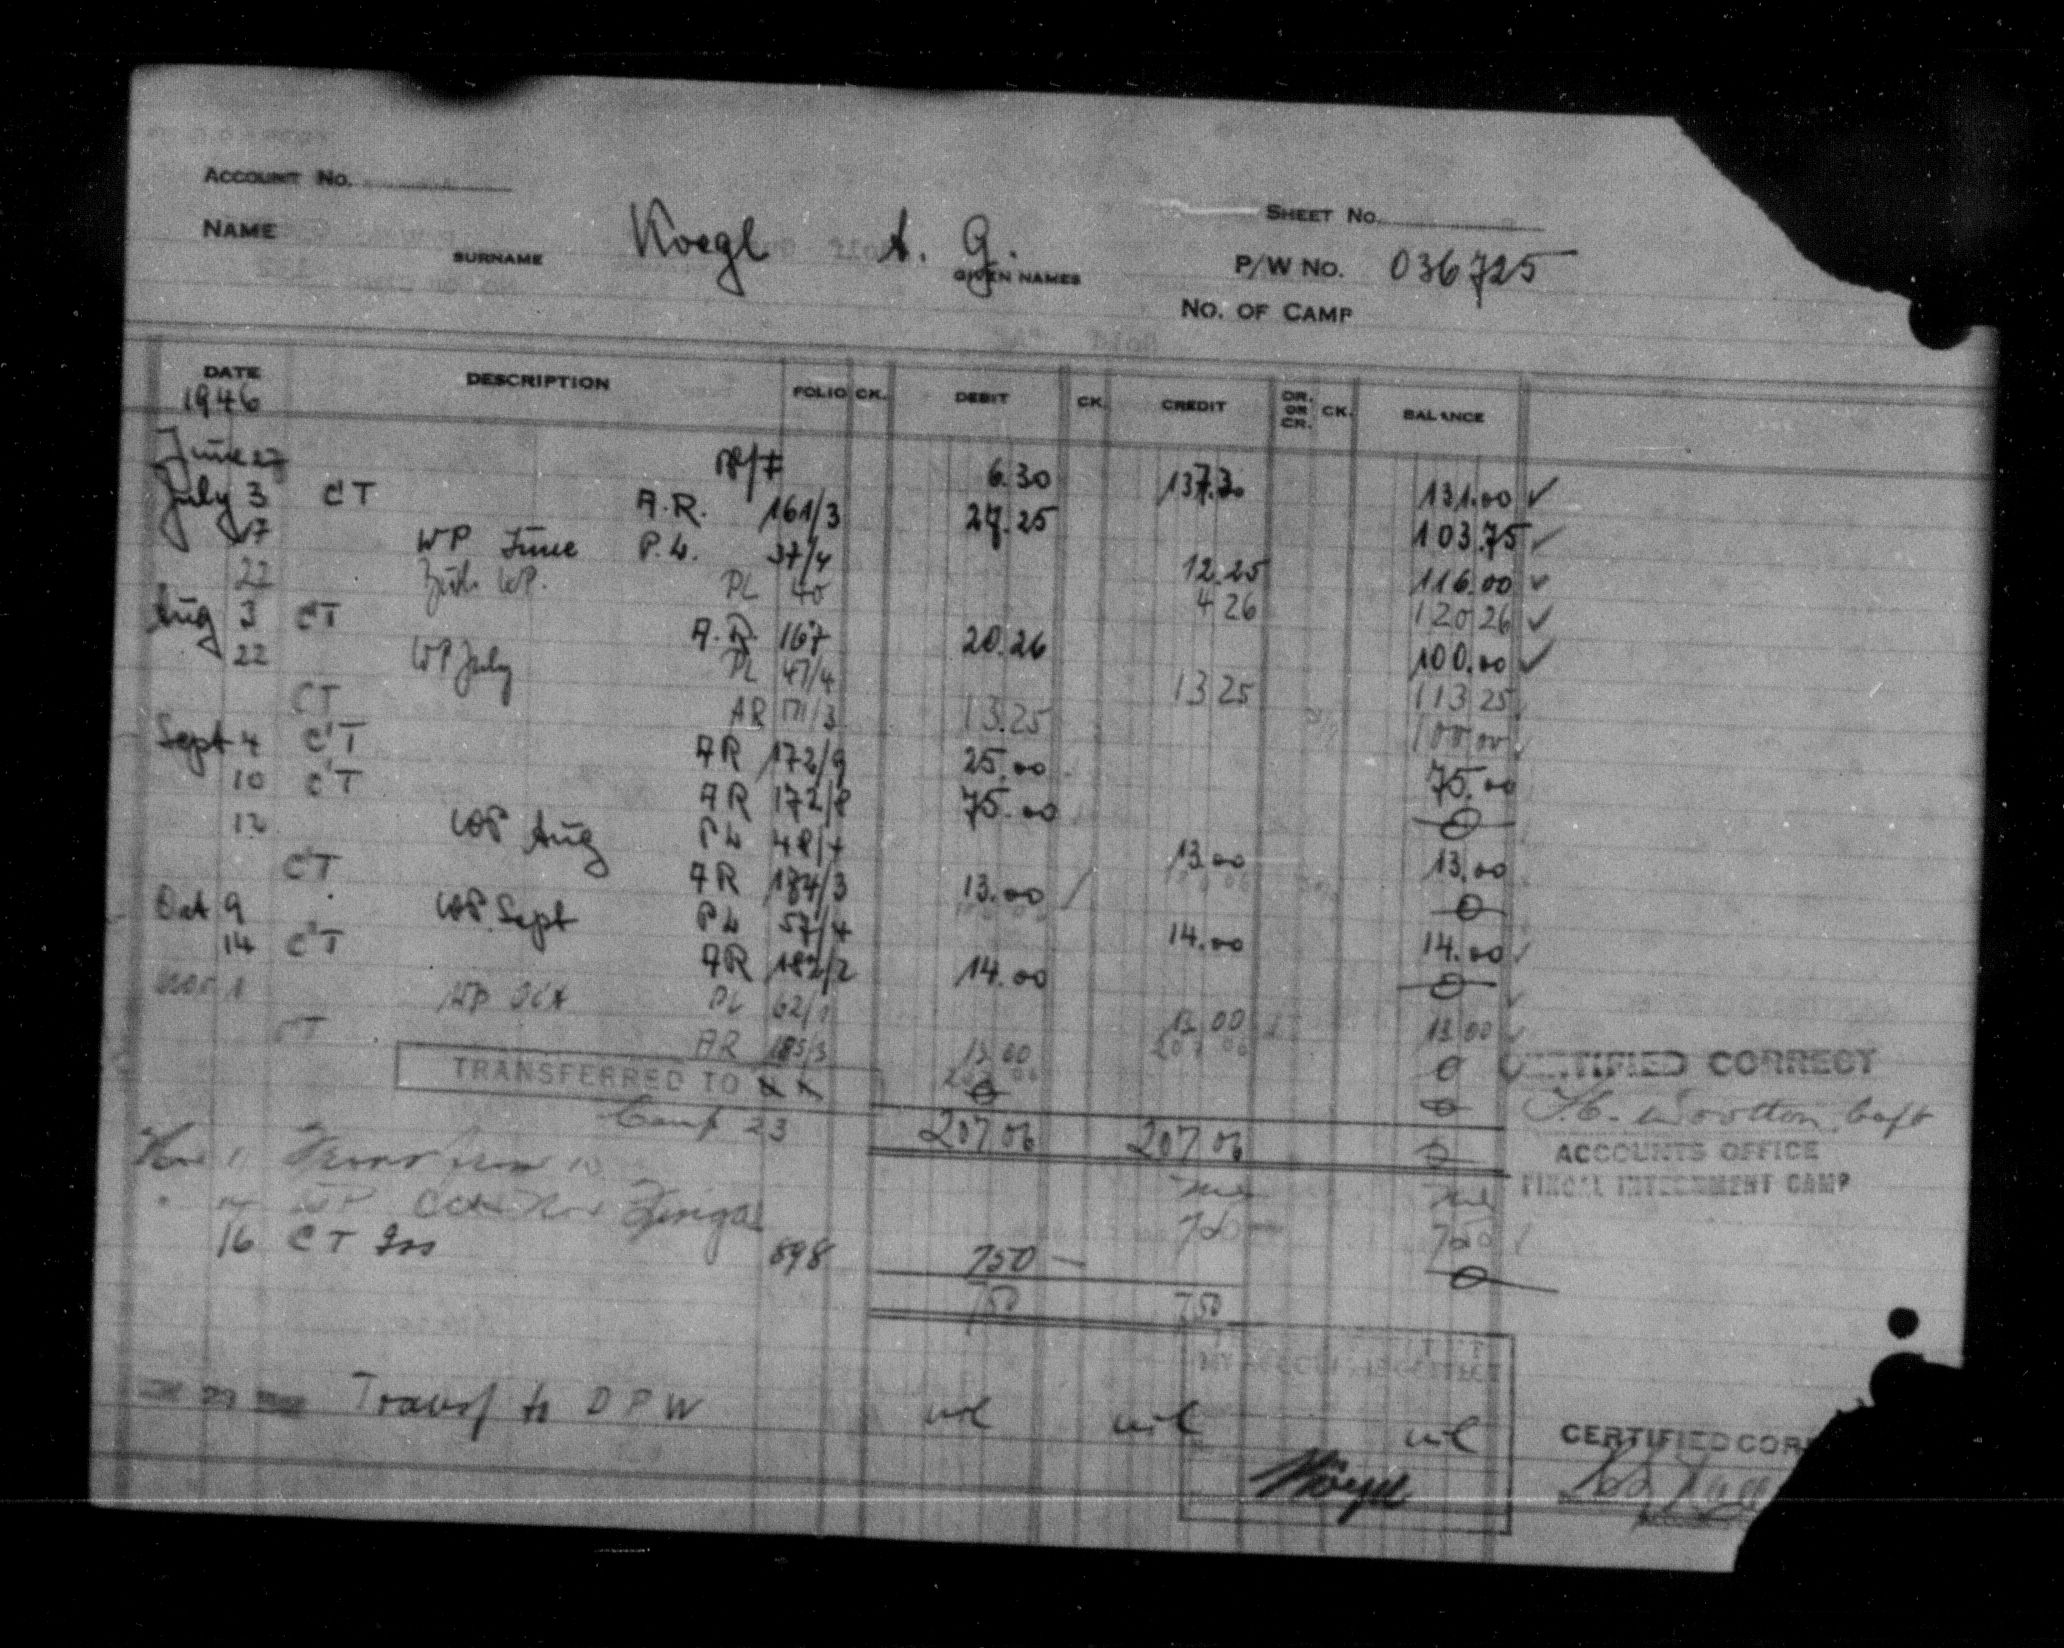 ACCOUNT No.
SHEET No.
NAME Koegl A. G.
SURNAME GIVEN NAMES
P/W No. 036725
No. OF CAMP
DATE DESCRIPTION FOLIO CK. DEBIT CK. CREDIT DR. OR CR. CK. BALANCE
1946
June 27 6.30 137.30 131.00 ✓
July 3 CT A.R. 161/3 27.25 103.75 ✓
17 WP June P.L. 37/4 12.25 116.00 ✓
22 WP. PL 40 4 26 120 26 ✓
Aug 3 CT A.R. 167 20.26 100.00 ✓
22 WP July PL 47/4 13 25 113 25
CT AR 171/3 13.25 100 00
Sept 4 CT AR 172/9 25.00 75.00
10 CT AR 172/8 75.00 0
12 WP Aug PL 48/4 13.00 13.00
CT AR 174/3 13.00 0
Oct 9 WP Sept PL 57/4 14.00 14.00 ✓
14 CT AR 182/2 14.00 0
Nov 1 WP Oct PL 62/1 13 00 13 00 ✓
CT AR 185/3 13 00 0
TRANSFERRED TO 0 0
CERTIFIED CORRECT
Camp 23 207.06 207.06 0
Wootton Capt
ACCOUNTS OFFICE
Nov 1 Trans from 10 nil nil
INTERNMENT CAMP
WP 750 750
16 CT 898 750 — 0
750 750
Transf to DPW nil nil nil
CERTIFIED COR
Kögel